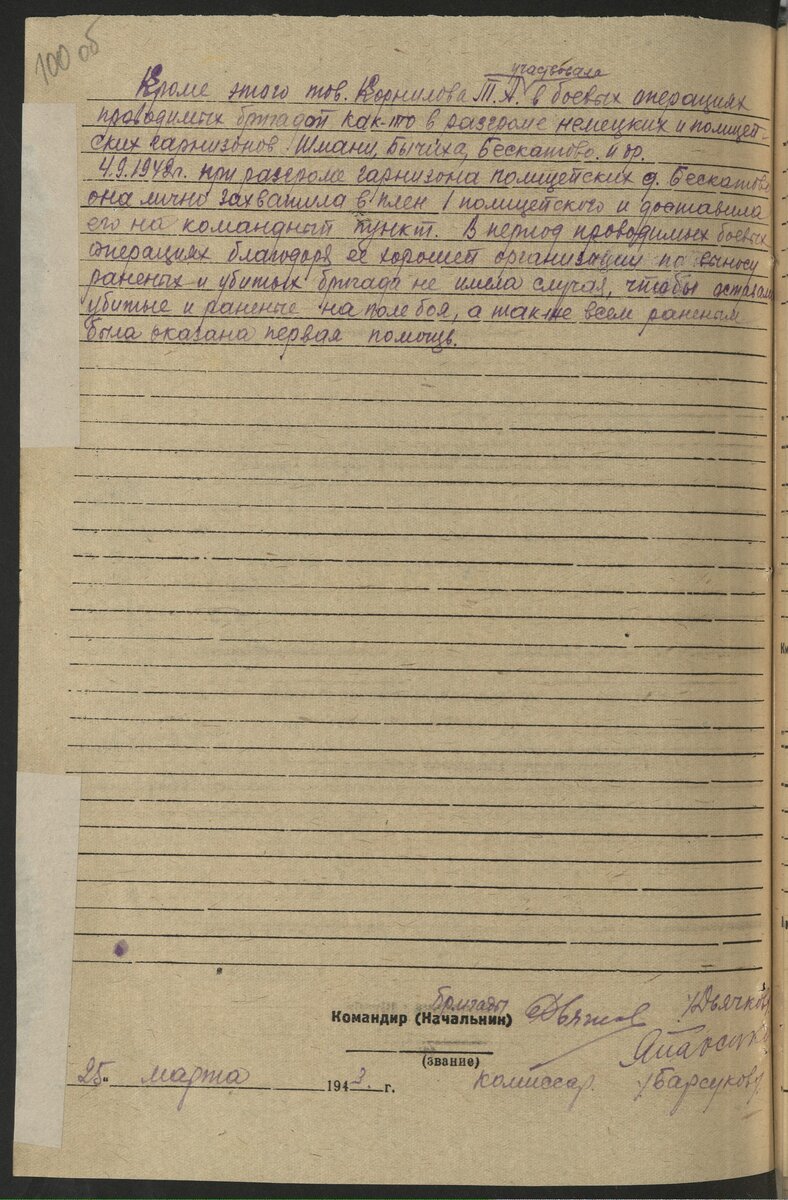 100 об
участвовала
Кроме этого тов. Корнилова Т.А. в боевых операциях
проводимых бригадой как-то в разгроме немецких и полицей-
ских гарнизонов Шмани, Бычиха, Бескатово. и др.
4.9.1942г. при разгроме гарнизона полицейских д. Бескатово
она лично захватила в плен 1 полицейского и доставила
его на командный пункт. В период проводимых боевых
операциях благодоря ее хорошей организации по выносу
раненых и убитых бригада не имела случая, чтобы остава
убитые и раненые на поле боя, а так-же всем раненым
была оказана первая помощь.
бригады
Командир (Начальник) /Дьячков
(звание)
25 марта 1943. г. комиссар. /Барсуков/.